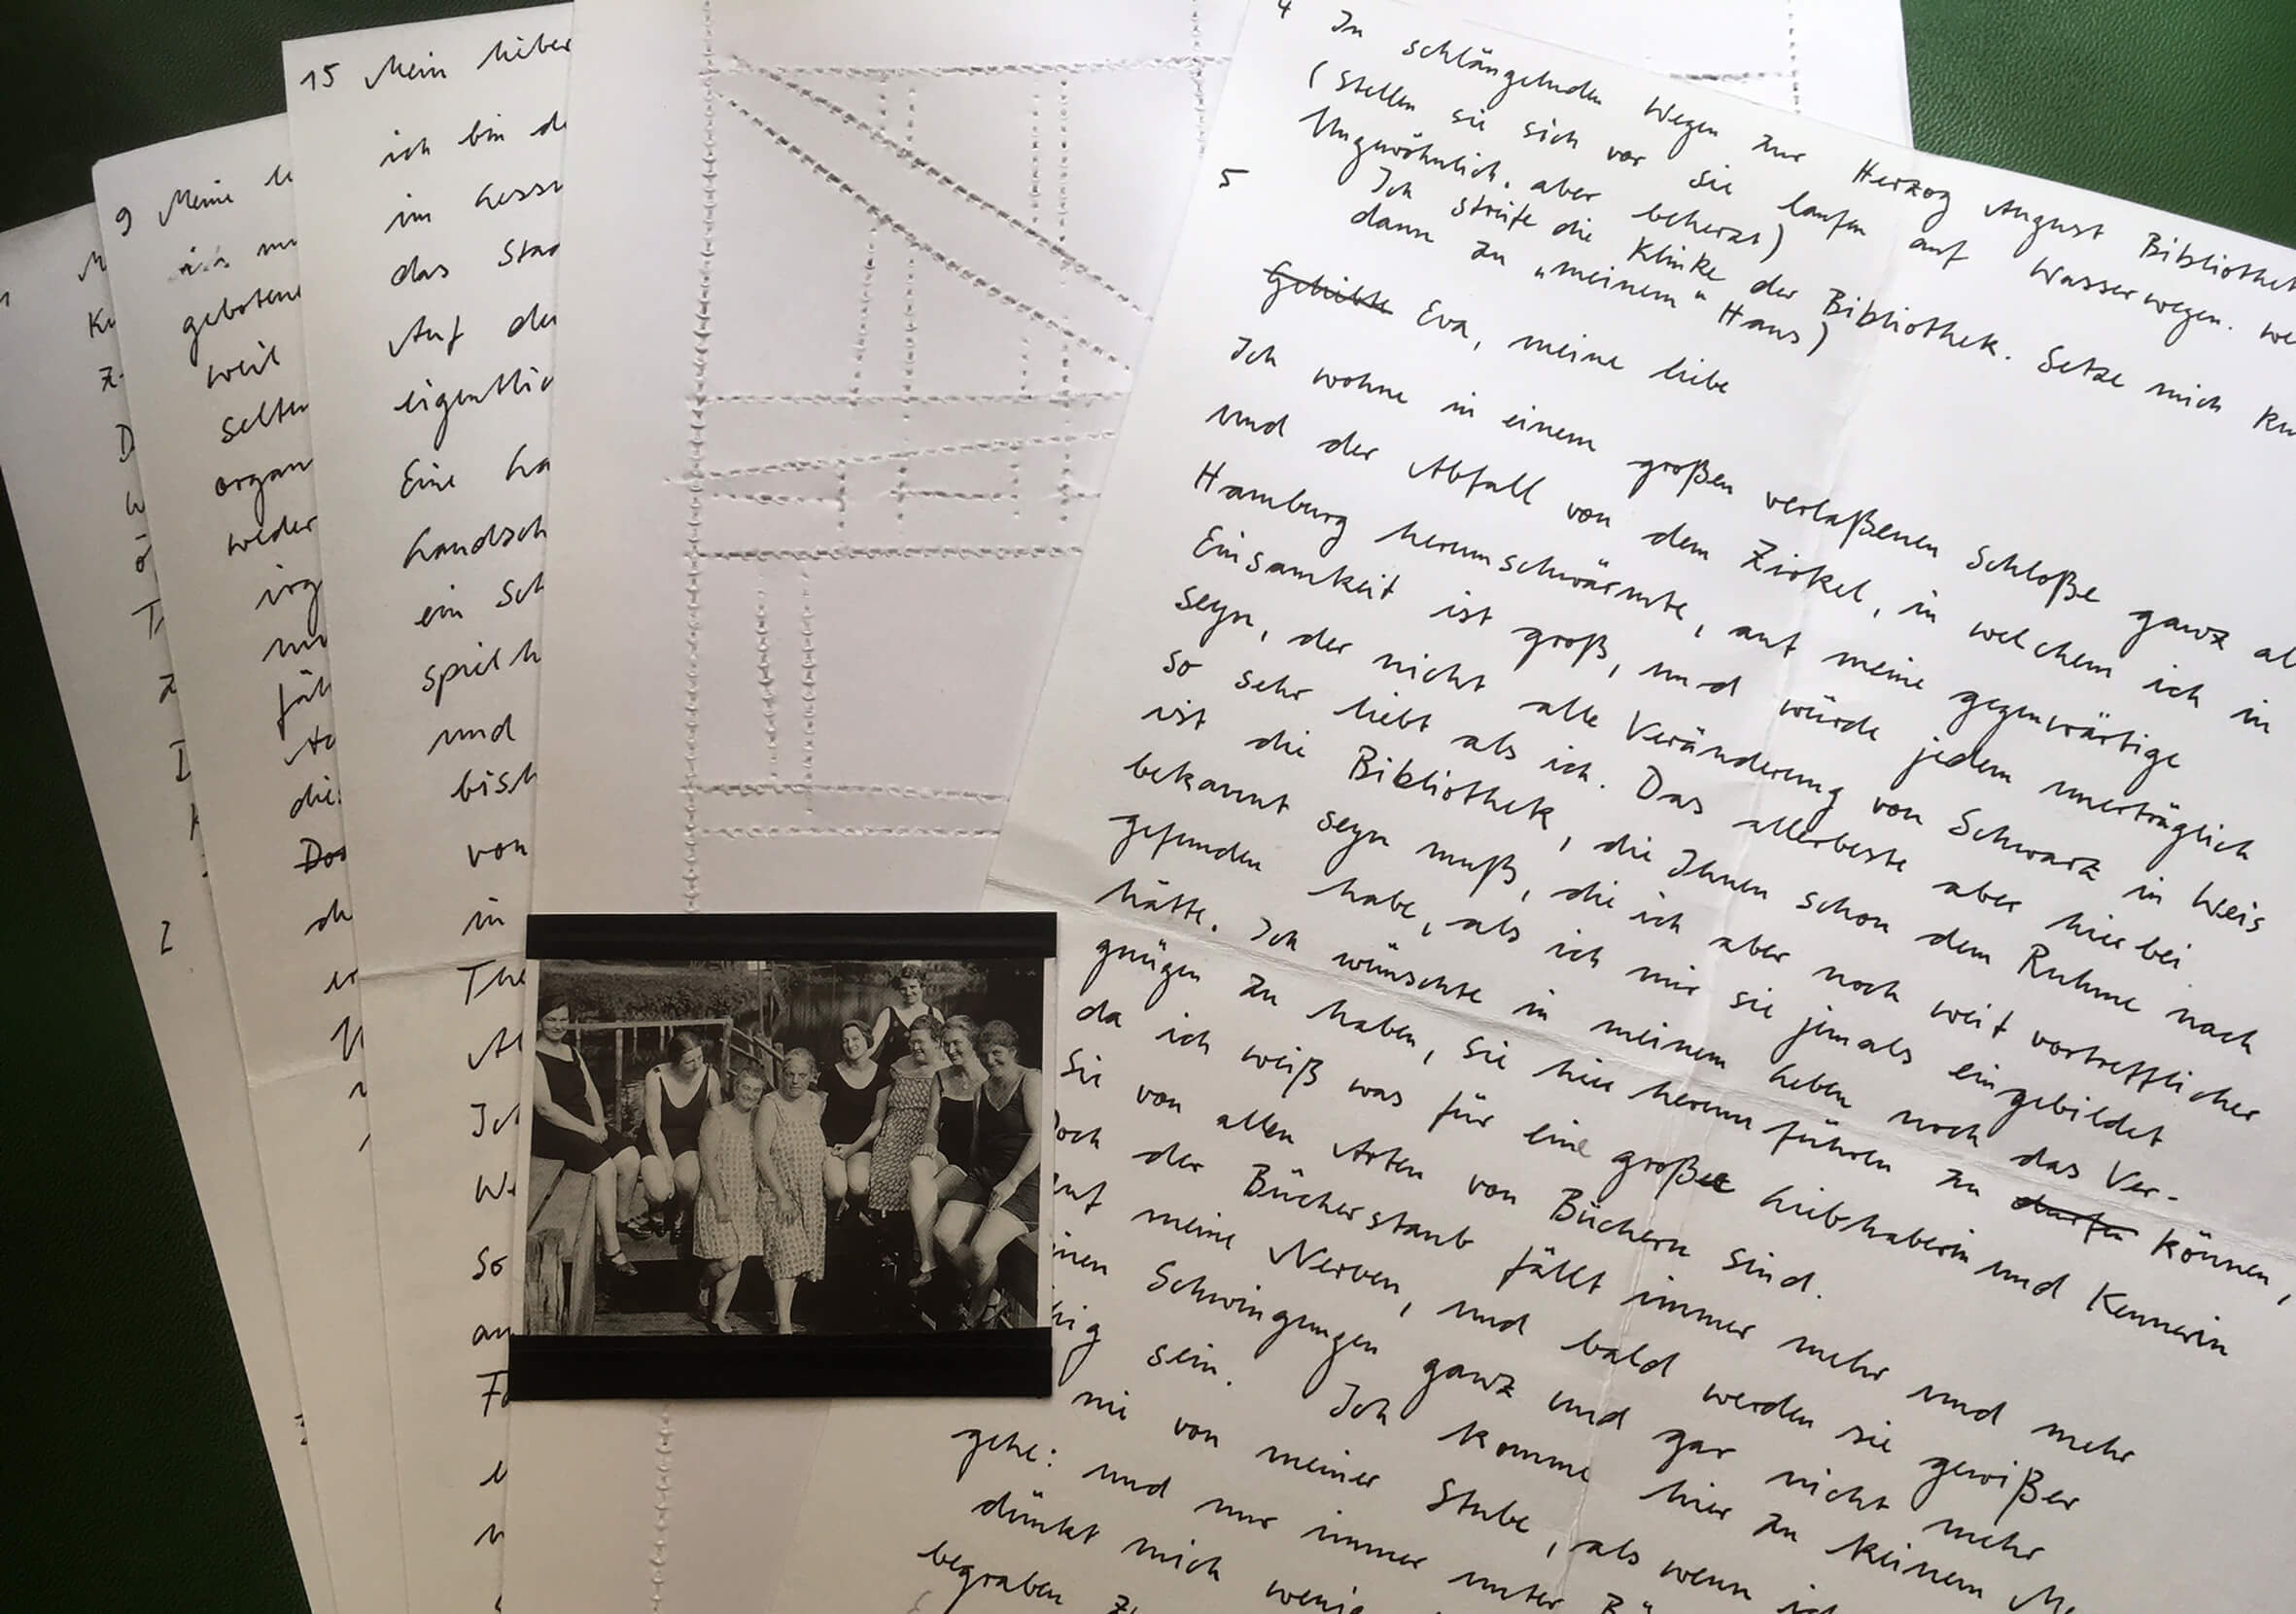 9 Meine
gebotene
weil
selten
organ
weder
irg
15 Mein lieber
ich bin de
im hess
das Stad
Auf der
eigentlic
Eine ha
handsch
ein Sch
spielh
und
bish
von
in
The
Ich
So
an
4 In schlängelnden Wegen zur Herzog August Bibliothek
(Stellen sie sich vor sie laufen auf Wasserwegen. We
Ungewöhnlich, aber beherzt)
5 Ich streife die Klinke der Bibliothek. Setze mich ku
dann zu „meinem“ Haus)
Geliebte Eva, meine liebe
Ich wohne in einem großen verlaßenen Schloße ganz al
und der Abfall von dem Zirkel, in welchem ich in
Hamburg herumschwärmte, auf meine gegenwärtige
Einsamkeit ist groß, und würde jedem unerträglich
seyn, der nicht alle Veränderung von Schwarz in Weis
so sehr liebt als ich. Das allerbeste aber hierbei
ist die Bibliothek, die Ihnen schon dem Ruhme nach
bekannt seyn muß, die ich aber noch weit vortrefflicher
gefunden habe, als ich mir sie jemals eingebildet
hätte. Ich wünschte in meinem Leben noch das Ver-
gnügen zu haben, Sie hier herum führen zu dürfen können,
da ich weiß was für eine große Liebhaberin und Kennerin
Sie von allen Arten von Büchern sind.
Doch der Bücherstaub fällt immer mehr und mehr
auf meine Nerven, und bald werden sie gewißer
einen Schwingungen ganz und gar nicht mehr
hig sein. Ich komme hier zu keinem Me
mir von meiner Stube, als wenn ich
gehe: und nur immer unter Bü
dünkt mich wenig
begraben